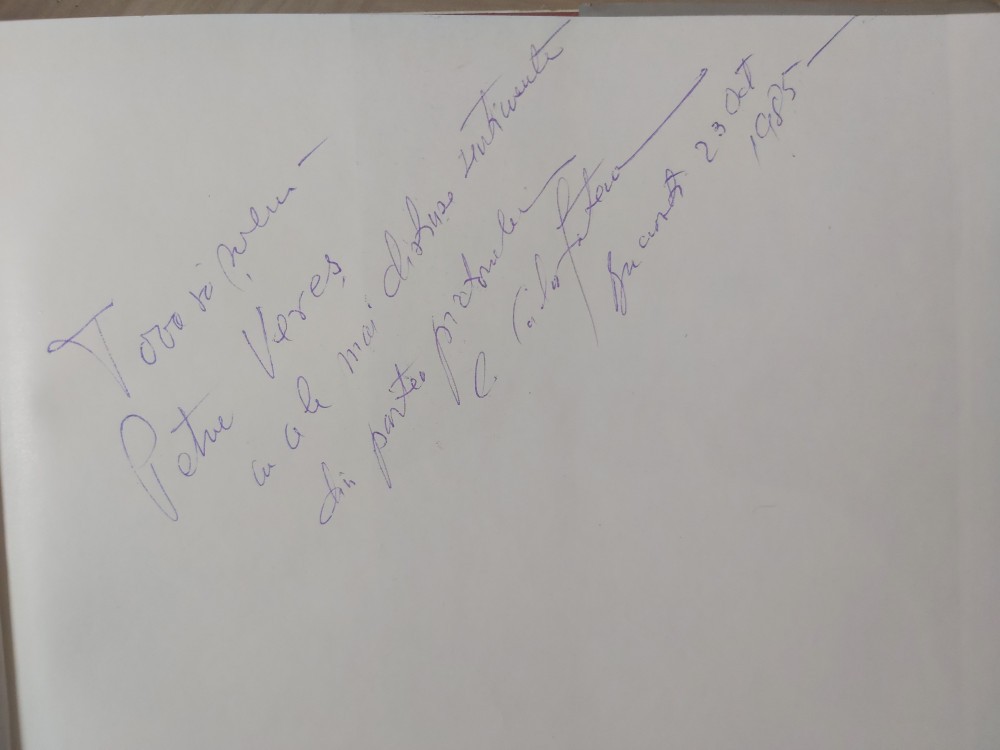 Tovarășului
Petre Vereș
cu cele mai distinse sentimente
din partea pictorului
C.
București 23 Oct
1985